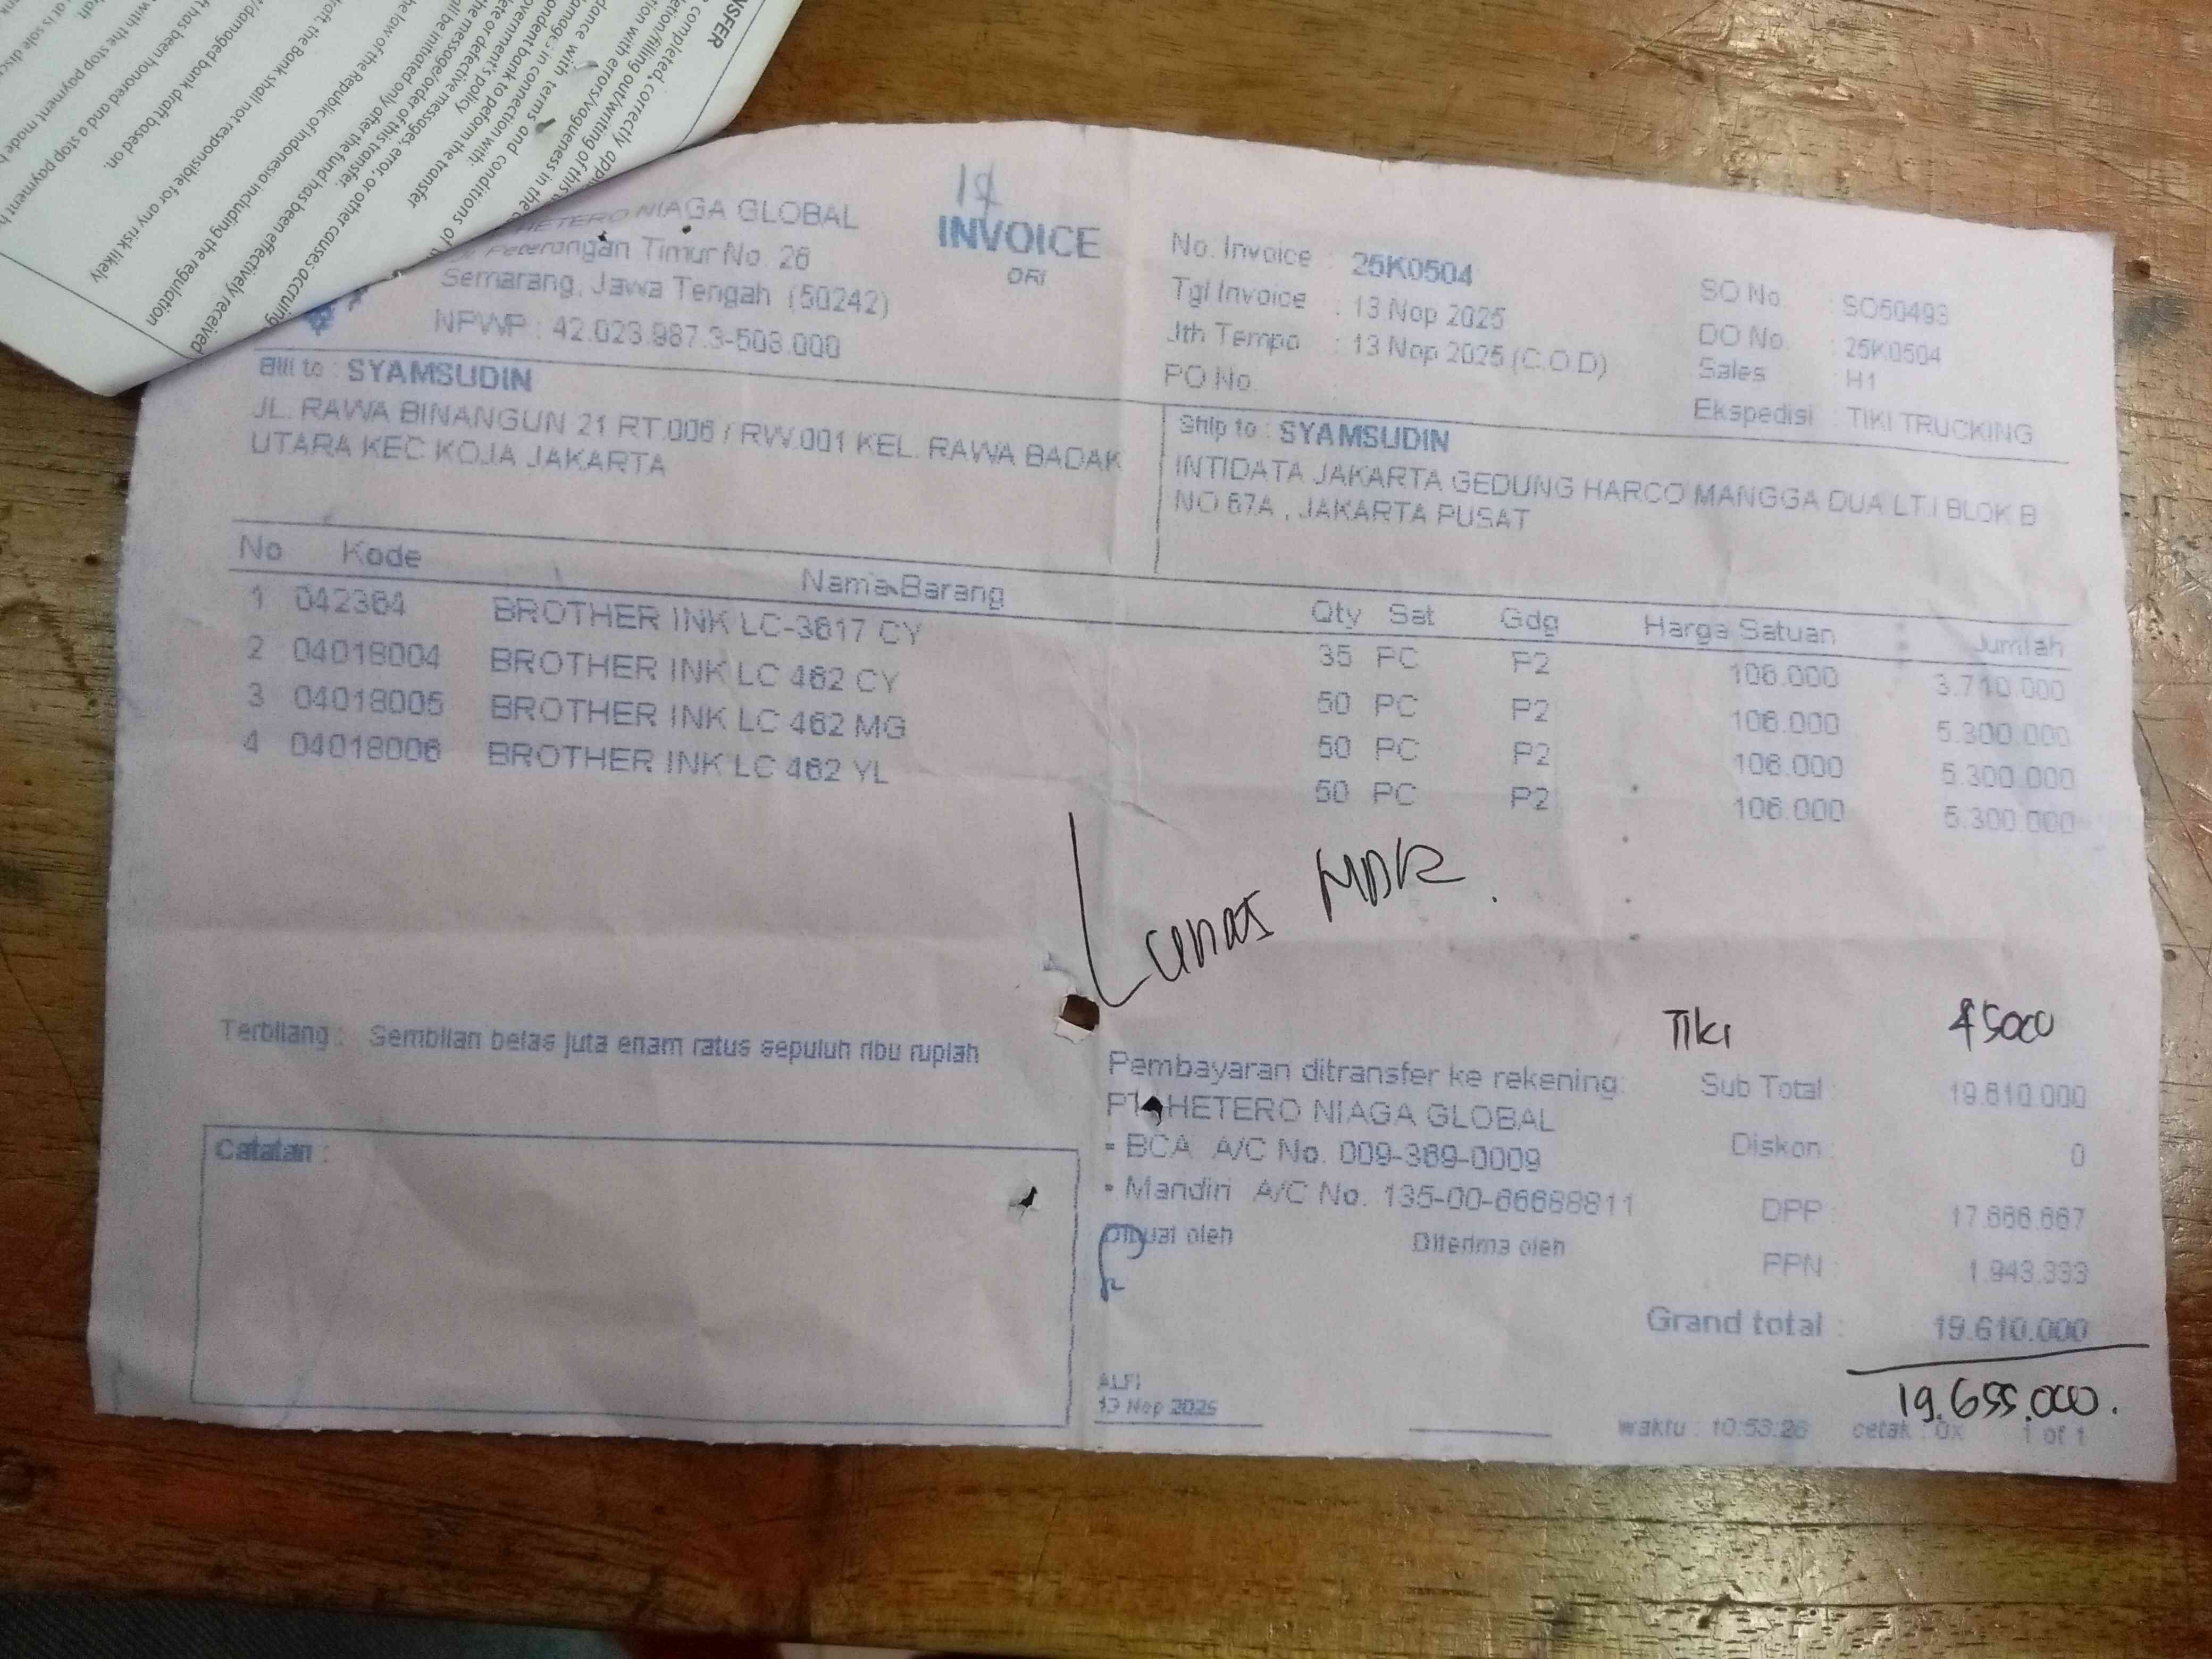 NSFER
completed, correctly
etion/filling out/writing of this
tion with errors/vagueness in the
dance with terms and conditions of
damage in connection with:
ondent bank to peform the transfer
overnment's policy
ete or defective messages, error, or other causes accruing
the message/order of this transfer.
all be initiated only after the fund has been effectively received
he law of the Republic of Indonesia including the regulation
draft. the Bank shall not responsible for any risk likely
/damaged bank draft based on.
ft has been honored and a stop payment
with the stop payment made
at is sole
14
HETERO NIAGA GLOBAL
Peterongan Timur No. 26
Semarang, Jawa Tengah (50242)
NPWP : 42.023.987.3-508.000
INVOICE
ORI
No. Invoice : 25K0504
Tgl Invoice : 13 Nop 2025
Jth Tempo : 13 Nop 2025 (C.O.D)
PO No.
SO No. : SO50493
DO No. : 25K0504
Sales : H1
Ekspedisi : TIKI TRUCKING
Bill to : SYAMSUDIN
JL. RAWA BINANGUN 21 RT.006 / RW.001 KEL. RAWA BADAK
UTARA KEC KOJA JAKARTA
Ship to : SYAMSUDIN
INTIDATA JAKARTA GEDUNG HARCO MANGGA DUA LT.I BLOK B
NO 67A , JAKARTA PUSAT
No Kode Nama Barang Qty Sat Gdg Harga Satuan Jumlah
1 042364 BROTHER INK LC-3617 CY 35 PC P2 106.000 3.710.000
2 04018004 BROTHER INK LC 462 CY 50 PC P2 106.000 5.300.000
3 04018005 BROTHER INK LC 462 MG 50 PC P2 106.000 5.300.000
4 04018006 BROTHER INK LC 462 YL 50 PC P2 106.000 5.300.000
Lunas MDR.
Tiki 45000
Terbilang : Sembilan belas juta enam ratus sepuluh ribu rupiah
Catatan :
Pembayaran ditransfer ke rekening:
PT. HETERO NIAGA GLOBAL
- BCA A/C No. 009-369-0009
- Mandiri A/C No. 135-00-66688811
Dibuat oleh Diterima oleh
Sub Total : 19.610.000
Diskon : 0
DPP : 17.666.667
PPN : 1.943.333
Grand total : 19.610.000
19.655.000.
ALFI
13 Nop 2025
waktu : 10:53:26 cetak : 0x 1 of 1